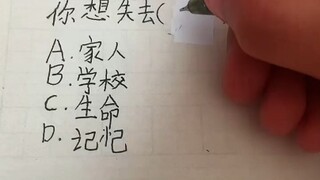 你想失去(
A.家人
B.学校
C.生命
D.记忆